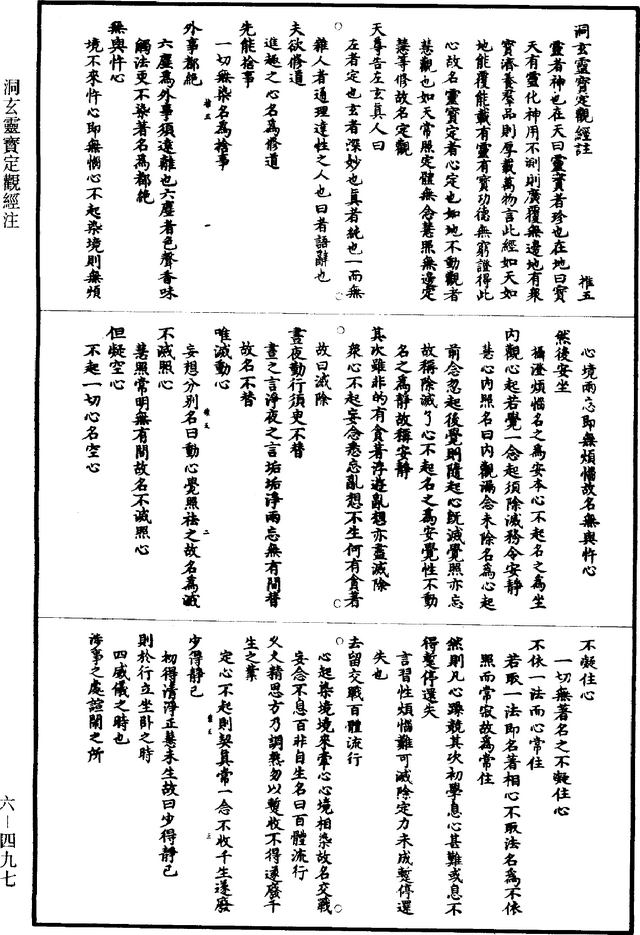 洞玄靈寶定觀經註
推五
靈者神也在天曰靈寶者珍也在地曰寶
天有靈化神用不測則廣覆無邊地有衆
寶濟養羣品則厚載萬物言此經如天如
地能覆能載有靈有寶功德無窮證得此
心故名靈寶定者心定也如地不動觀者
慧觀也如天常照定體無念慧照無邊定
慧等修故名定觀
天尊告左玄真人曰
左者定也玄者深妙也真者純也一而無
雜人者通理達性之人也曰者語辭也
夫欲修道
進趣之心名為修道
先能捨事
一切無染名為捨事
外事都絕
六塵為外事須遠離也六塵者色聲香味
觸法更不染著名為都絕
無與忤心
境不來忤心即無惱心不起染境則無煩
心境兩忘即無煩惱故名無與忤心
然後安坐
攝澄煩惱名之為安本心不起名之為坐
內觀心起若覺一念起須除滅務令安靜
慧心內照名曰內觀漏念未除名為心起
前念忽起後覺則隨起心既滅覺照亦忘
故稱除滅了心不起名之為安覺性不動
名之為靜故稱安靜
其次雖非的有貪著浮遊亂想亦盡滅除
衆心不起妄念悉忘亂想不生何有貪著
故曰滅除
晝夜勤行須臾不替
晝之言淨夜之言垢垢淨兩忘無有間替
故名不替
唯滅動心
妄想分別名曰動心覺照祛之故名為滅
不滅照心
慧照常明無有間故名不滅照心
但凝空心
不起一切心名空心
不凝住心
一切無著名之不凝住心
不依一法而心常住
若取一法即名著相心不取法名為不依
照而常寂故為常住
然則凡心躁競其次初學息心甚難或息不
得暫停還失
言習性煩惱難可滅除定力未成暫停還
失也
去留交戰百體流行
心起染境境來牽心心境相染故名交戰
妄念不息百非自生名曰百體流行
久久精思方乃調熟勿以暫收不得遂廢千
生之業
定心不起則契真常一念不收千生遂廢
少得靜已
初得清淨正慧未生故曰少得靜已
則於行立坐卧之時
四威儀之時也
涉事之處諠鬧之所
洞玄靈寶定觀經注
六－四九七